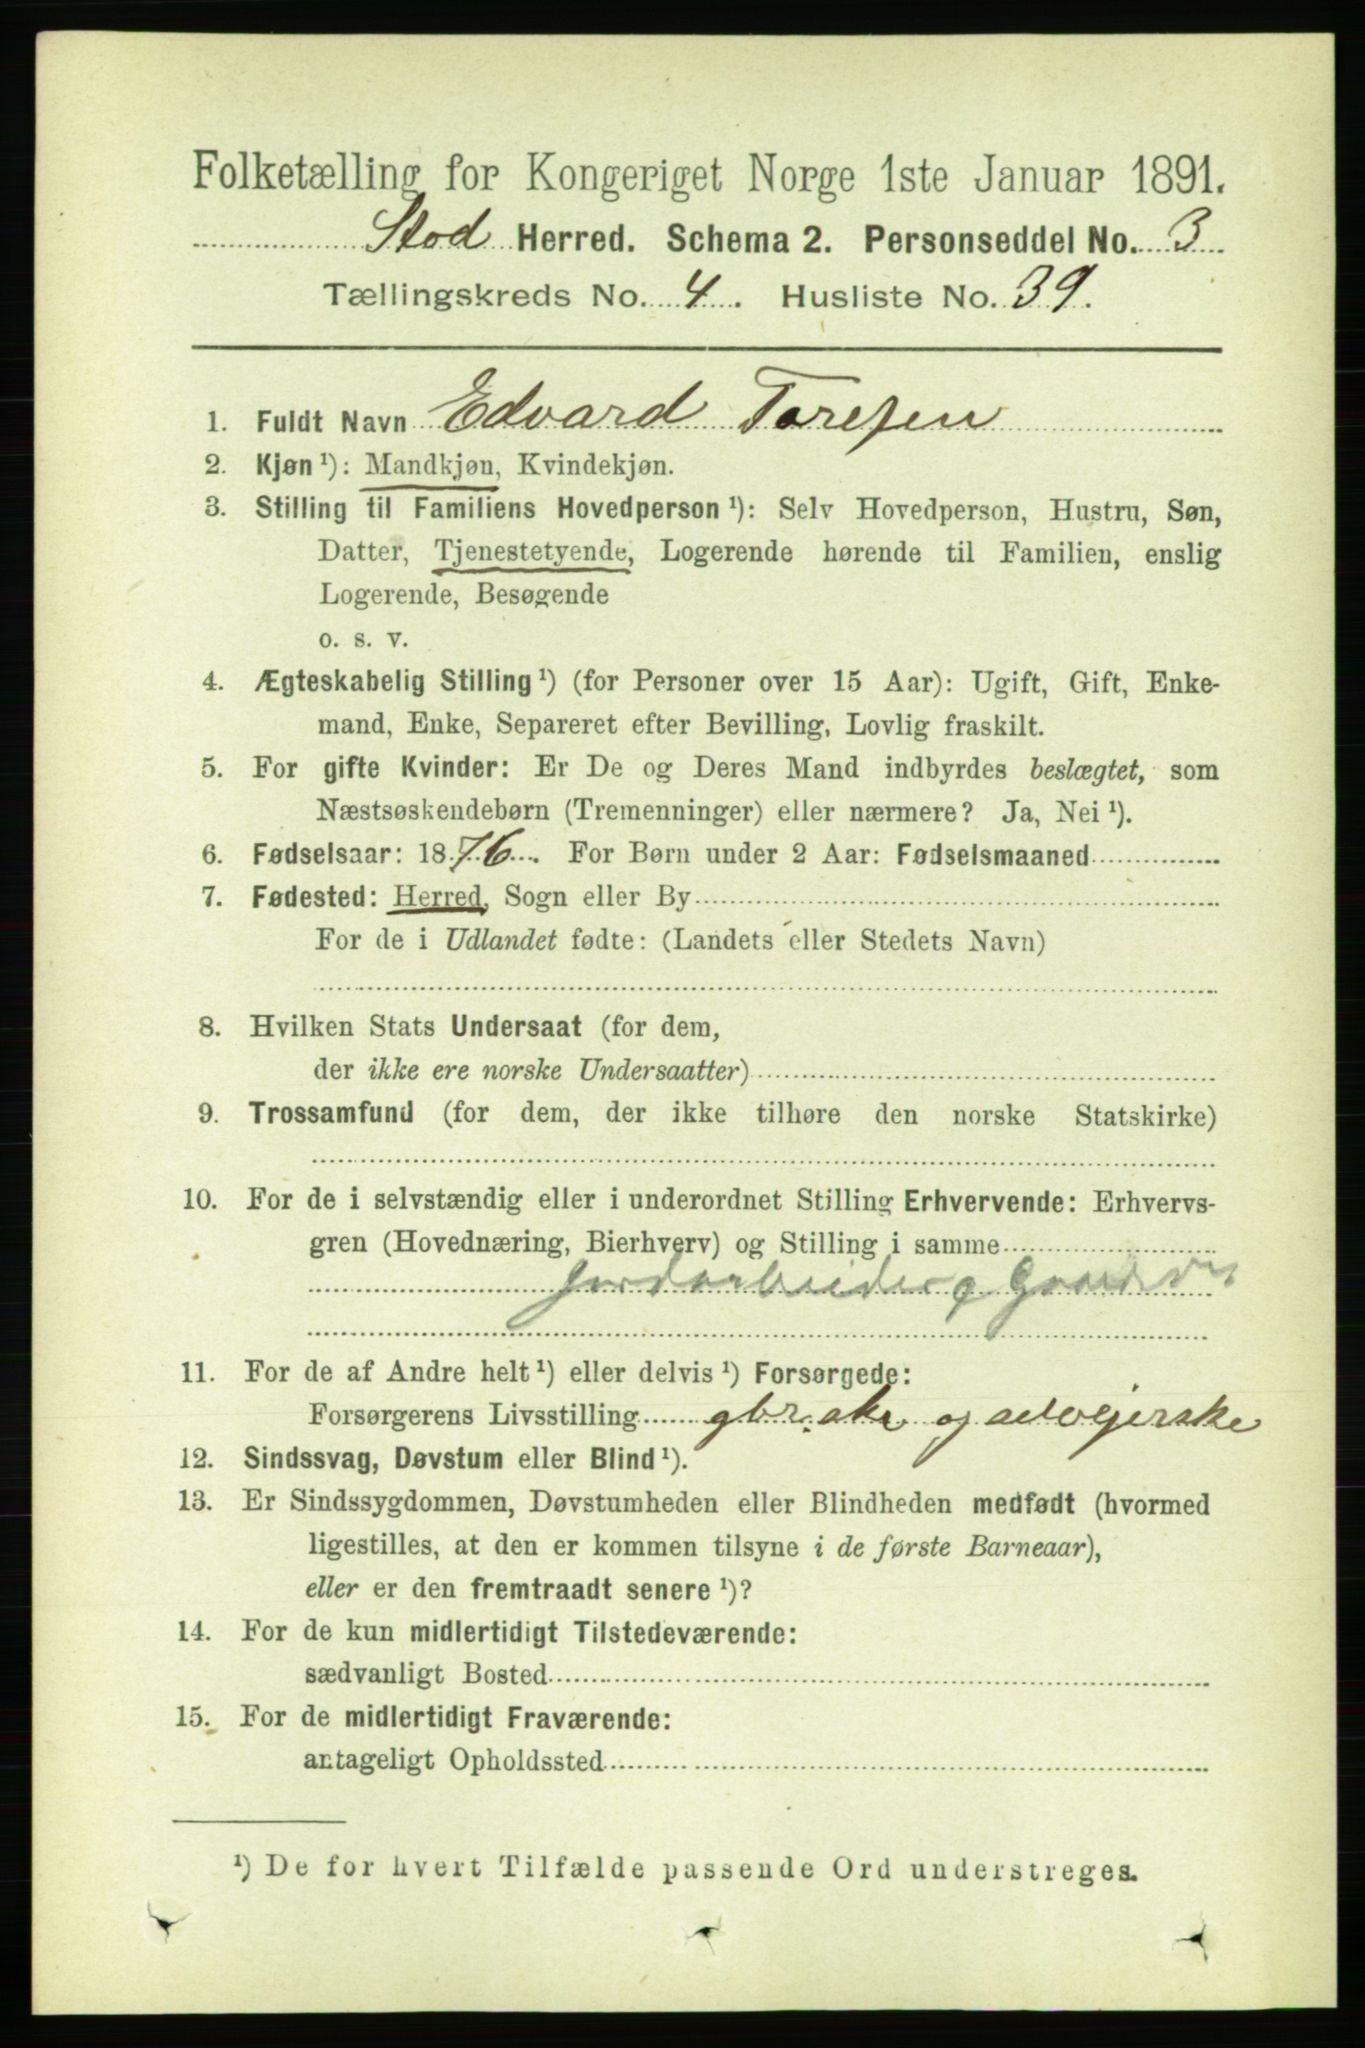 Folketælling for Kongeriget Norge 1ste Januar 1891.
Stod Herred. Schema 2. Personseddel No. 3
Tællingskreds No. 4. Husliste No. 39.
1. Fuldt Navn Edvard Toresen
2. Kjøn ¹): Mandkjøn, Kvindekjøn.
3. Stilling til Familiens Hovedperson ¹): Selv Hovedperson, Hustru, Søn,
Datter, Tjenestetyende, Logerende hørende til Familien, enslig
Logerende, Besøgende
o. s. v.
4. Ægteskabelig Stilling ¹) (for Personer over 15 Aar): Ugift, Gift, Enke-
mand, Enke, Separeret efter Bevilling, Lovlig fraskilt.
5. For gifte Kvinder: Er De og Deres Mand indbyrdes beslægtet, som
Næstsøskendebørn (Tremenninger) eller nærmere? Ja, Nei ¹).
6. Fødselsaar: 1876. For Børn under 2 Aar: Fødselsmaaned
7. Fødested: Herred, Sogn eller By
For de i Udlandet fødte: (Landets eller Stedets Navn)
8. Hvilken Stats Undersaat (for dem,
der ikke ere norske Undersaatter)
9. Trossamfund (for dem, der ikke tilhøre den norske Statskirke)
10. For de i selvstændig eller i underordnet Stilling Erhvervende: Erhvervs-
gren (Hovednæring, Bierhverv) og Stilling i samme
Jordarbeider
11. For de af Andre helt ¹) eller delvis ¹) Forsørgede:
Forsørgerens Livsstilling gbr. og selvejerske
12. Sindssvag, Døvstum eller Blind ¹).
13. Er Sindssygdommen, Døvstumheden eller Blindheden medfødt (hvormed
ligestilles, at den er kommen tilsyne i de første Barneaar),
eller er den fremtraadt senere ¹)?
14. For de kun midlertidigt Tilstedeværende:
sædvanligt Bosted
15. For de midlertidigt Fraværende:
antageligt Opholdssted
¹) De for hvert Tilfælde passende Ord understreges.